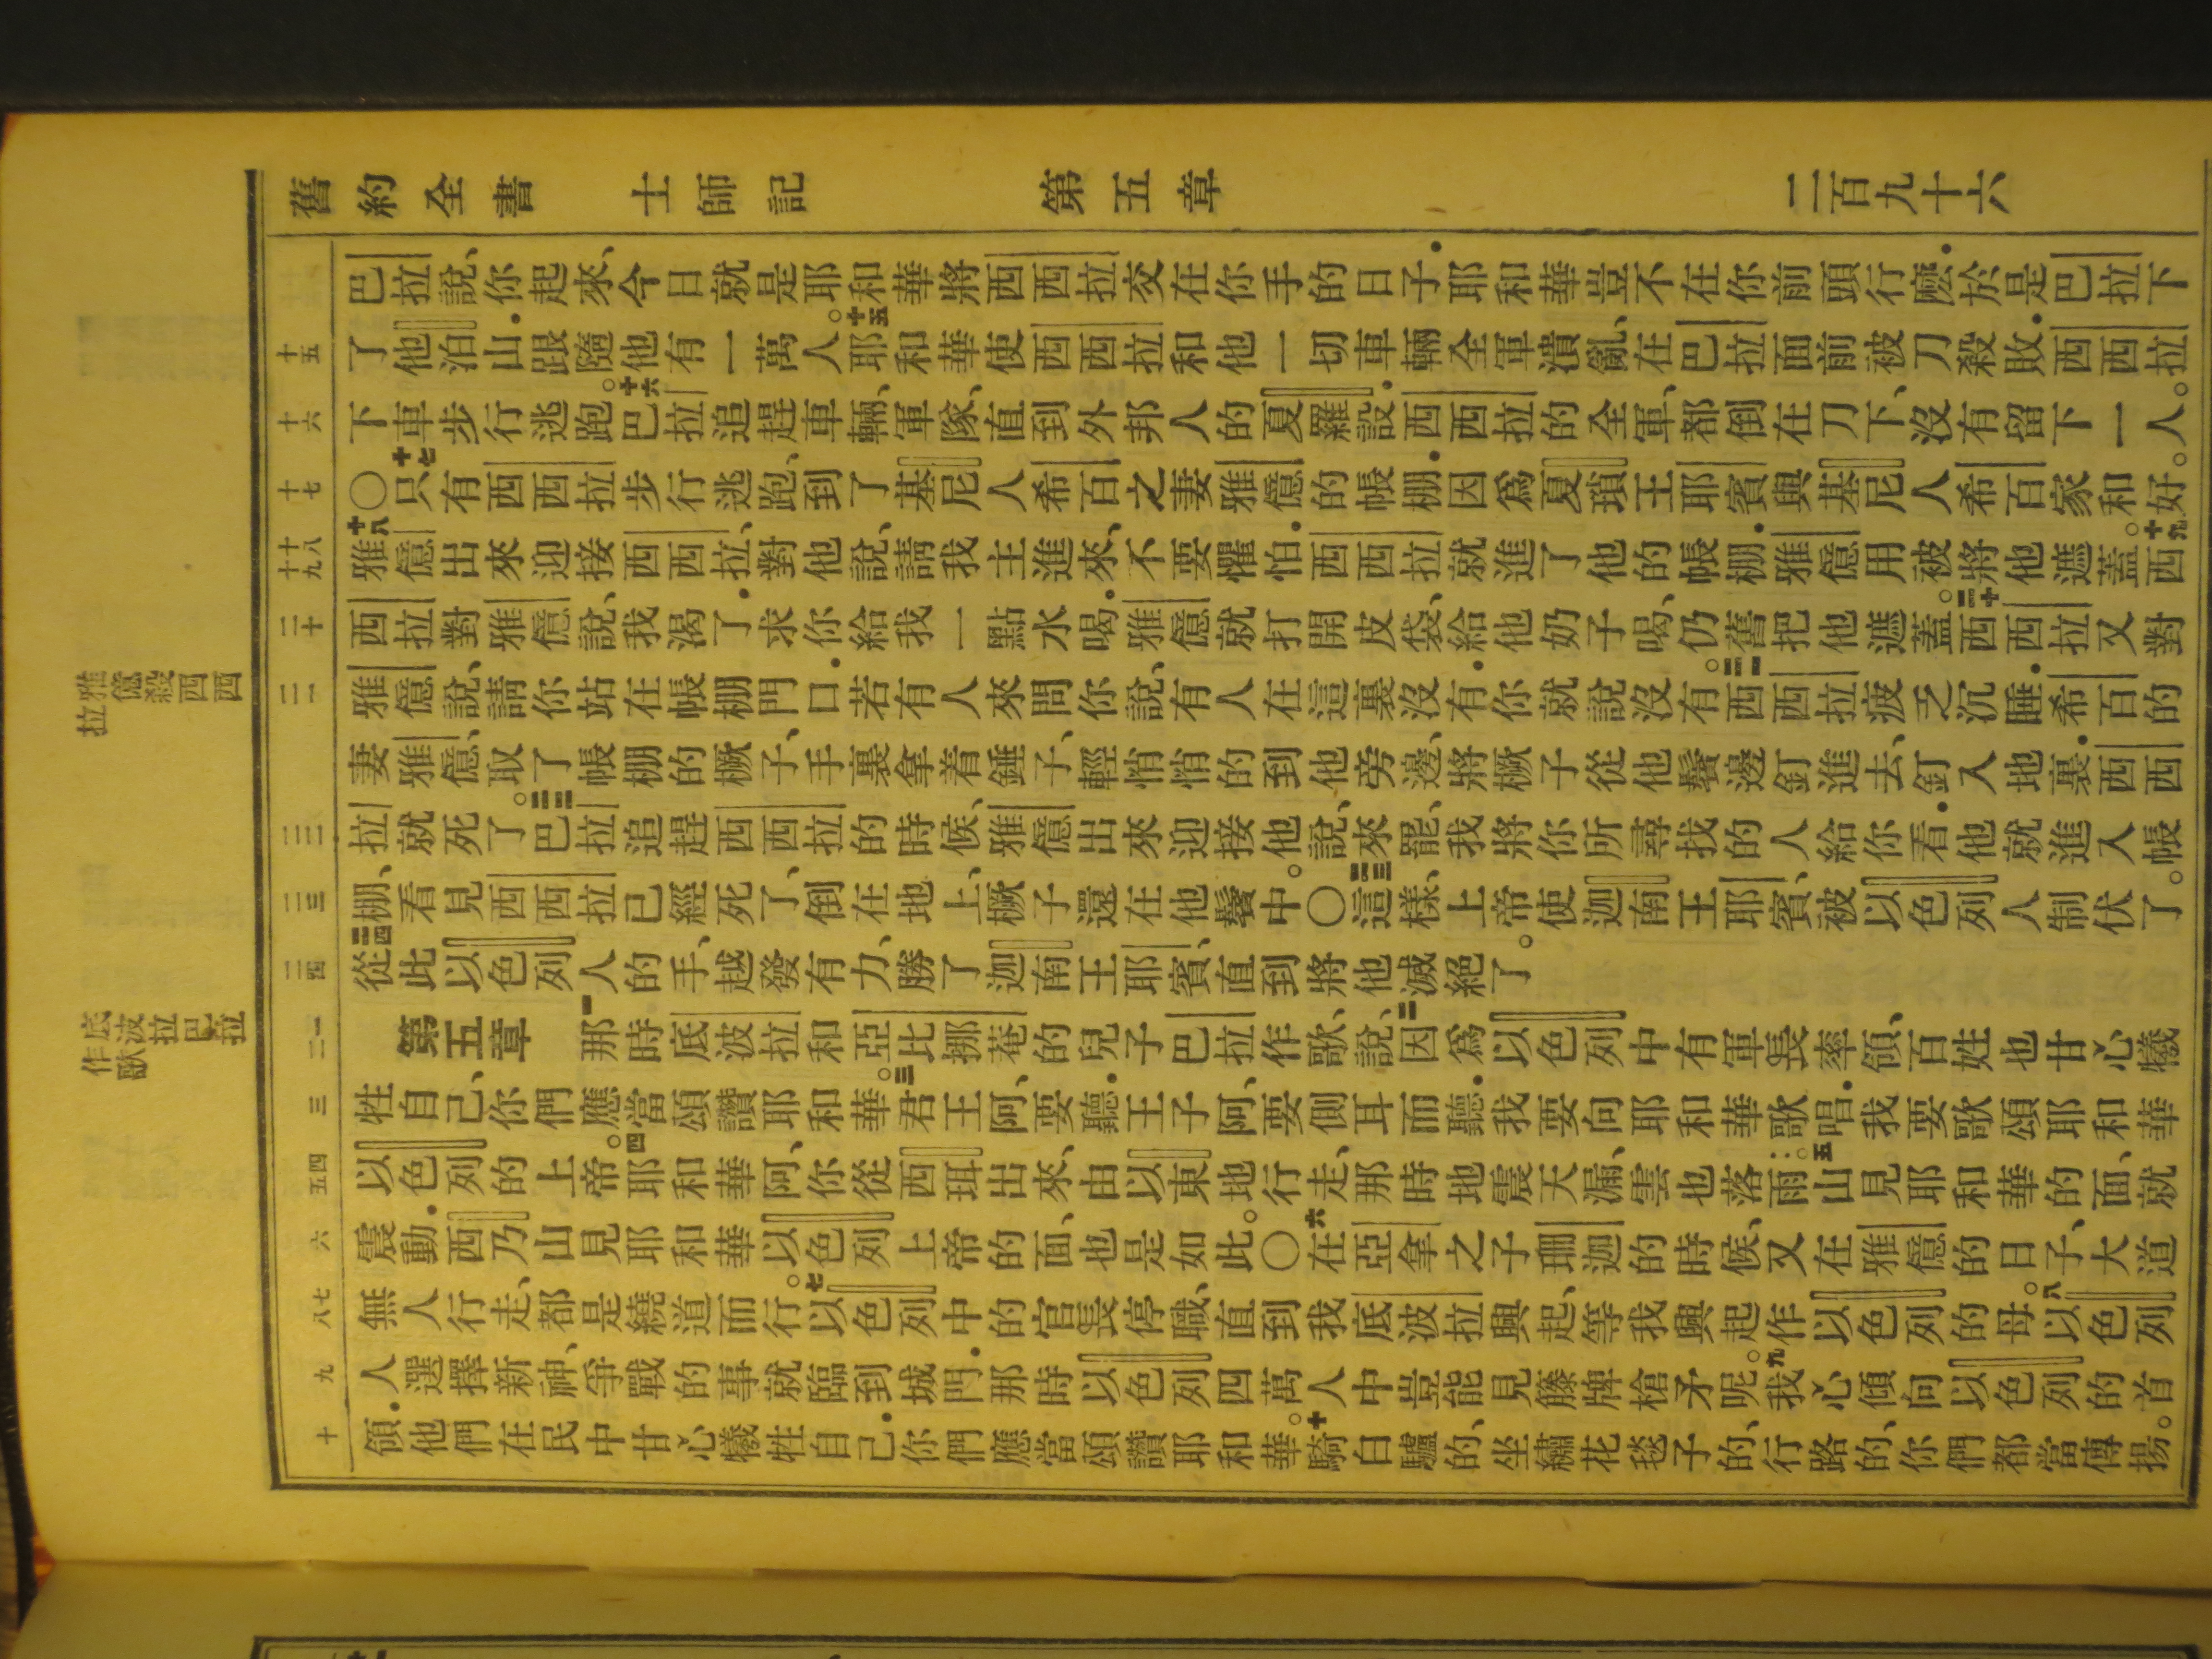 舊約全書 士師記 第五章 二百九十六
巴拉說、你起來、今日就是耶和華將西西拉交在你手的日子．耶和華豈不在你前頭行麽．於是巴拉下
十五 了他泊山．跟隨他有一萬人。十五耶和華使西西拉和他一切車輛全軍潰亂、在巴拉面前被刀殺敗．西西拉
十六 下車步行逃跑。十六巴拉追趕車輛、軍隊、直到外邦人的夏羅設．西西拉的全軍、都倒在刀下、沒有留下一人。
十七 〇十七只有西西拉步行逃跑、到了基尼人希百之妻雅億的帳棚．因爲夏瑣王耶賓與基尼人希百家和好。
十八 十九 十八雅億出來迎接西西拉、對他說、請我主進來、不要懼怕．西西拉就進了他的帳棚．雅億用被將他遮蓋。十九西
二十 西拉對雅億說、我渴了．求你給我一點水喝．雅億就打開皮袋、給他奶子喝、仍舊把他遮蓋。二十西西拉又對
二一 雅億說、請你站在帳棚門口．若有人來問你說、有人在這裏沒有．你就說沒有。二一西西拉疲乏沉睡．希百的
妻雅億、取了帳棚的橛子、手裏拿着錘子、輕悄悄的到他旁邊、將橛子從他鬢邊釘進去、釘入地裏．西西
二二 拉就死了。二二巴拉追趕西西拉的時候、雅億出來迎接他說、來罷、我將你所尋找的人給你看．他就進入帳
二三 棚、看見西西拉已經死了、倒在地上、橛子還在他鬢中。〇二三這樣、上帝使迦南王耶賓、被以色列人制伏了。
二四 二四從此以色列人的手、越發有力、勝了迦南王耶賓、直到將他滅絕了。
一 二 第五章 一那時底波拉和亞比挪菴的兒子巴拉作歌、說、二因爲以色列中有軍長率領、百姓也甘心犧
三 牲自己、你們應當頌讚耶和華。三君王阿、要聽．王子阿、要側耳而聽．我要向耶和華歌唱．我要歌頌耶和華
四 五 以色列的上帝。四耶和華阿、你從西珥出來、由以東地行走、那時地震天漏、雲也落雨。五山見耶和華的面、就
六 震動．西乃山見耶和華以色列上帝的面、也是如此。〇六在亞拿之子珊迦的時候、又在雅億的日子、大道
七 八 無人行走、都是繞道而行。七以色列中的官長停職、直到我底波拉興起、等我興起作以色列的母。八以色列
九 人選擇新神、爭戰的事就臨到城門．那時以色列四萬人中豈能見籐牌槍矛呢。九我心傾向以色列的首
十 領．他們在民中甘心犧牲自己．你們應當頌讚耶和華。十騎白驢的、坐繡花毯子的、行路的、你們都當傳揚。
雅億殺西西拉
底波拉巴拉作歌